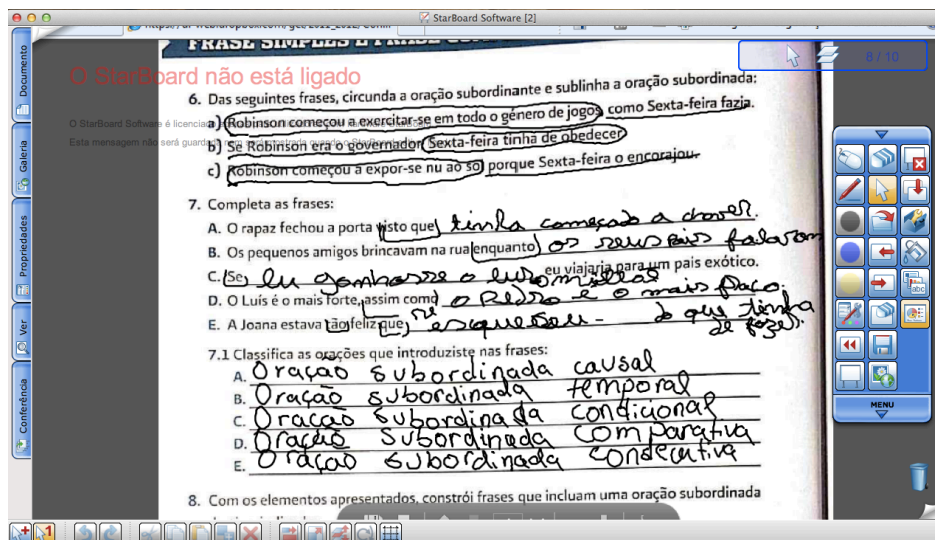 StarBoard Software [2]
FRASE SIMPLES E FRASE
8 / 10
O StarBoard não está ligado
O StarBoard Software é licenciado
Esta mensagem não será guardada nem
6. Das seguintes frases, circunda a oração subordinante e sublinha a oração subordinada:
a) Robinson começou a exercitar-se em todo o género de jogos como Sexta-feira fazia.
b) Se Robinson era o governador Sexta-feira tinha de obedecer
c) Robinson começou a expor-se nu ao sol porque Sexta-feira o encorajou.
7. Completa as frases:
A. O rapaz fechou a porta visto que tinha começado a chover.
B. Os pequenos amigos brincavam na rua enquanto os seus pais falavam
C. Se eu ganhasse o euromilhões eu viajaria para um país exótico.
D. O Luís é o mais forte, assim como o Pedro é o mais fraco.
E. A Joana estava tão feliz que, se esqueceu do que tinha
de fazer.
7.1 Classifica as orações que introduziste nas frases:
A. Oração subordinada causal
B. Oração subordinada temporal
C. Oração subordinada condicional
D. Oração subordinada comparativa
E. Oração subordinada consecutiva
8. Com os elementos apresentados, constrói frases que incluam uma oração subordinada
Documento
Galeria
Propriedades
Ver
Conferência
abc
MENU
1